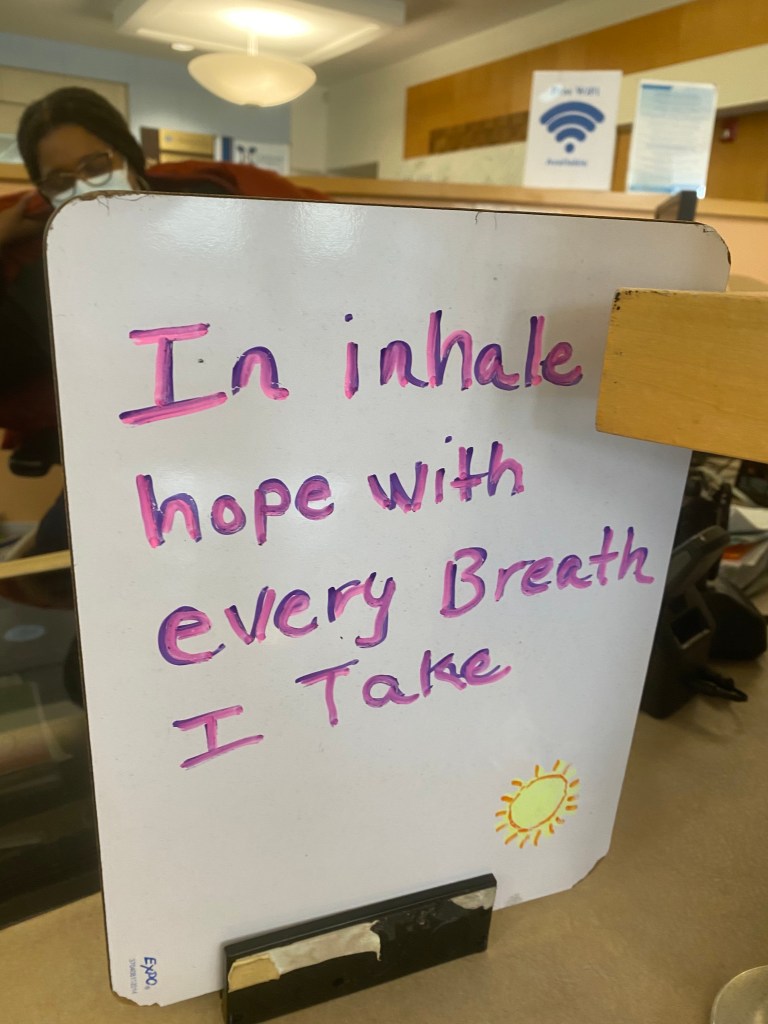 Free WiFi
Available
In inhale
hope with
every Breath
I Take
EXPO